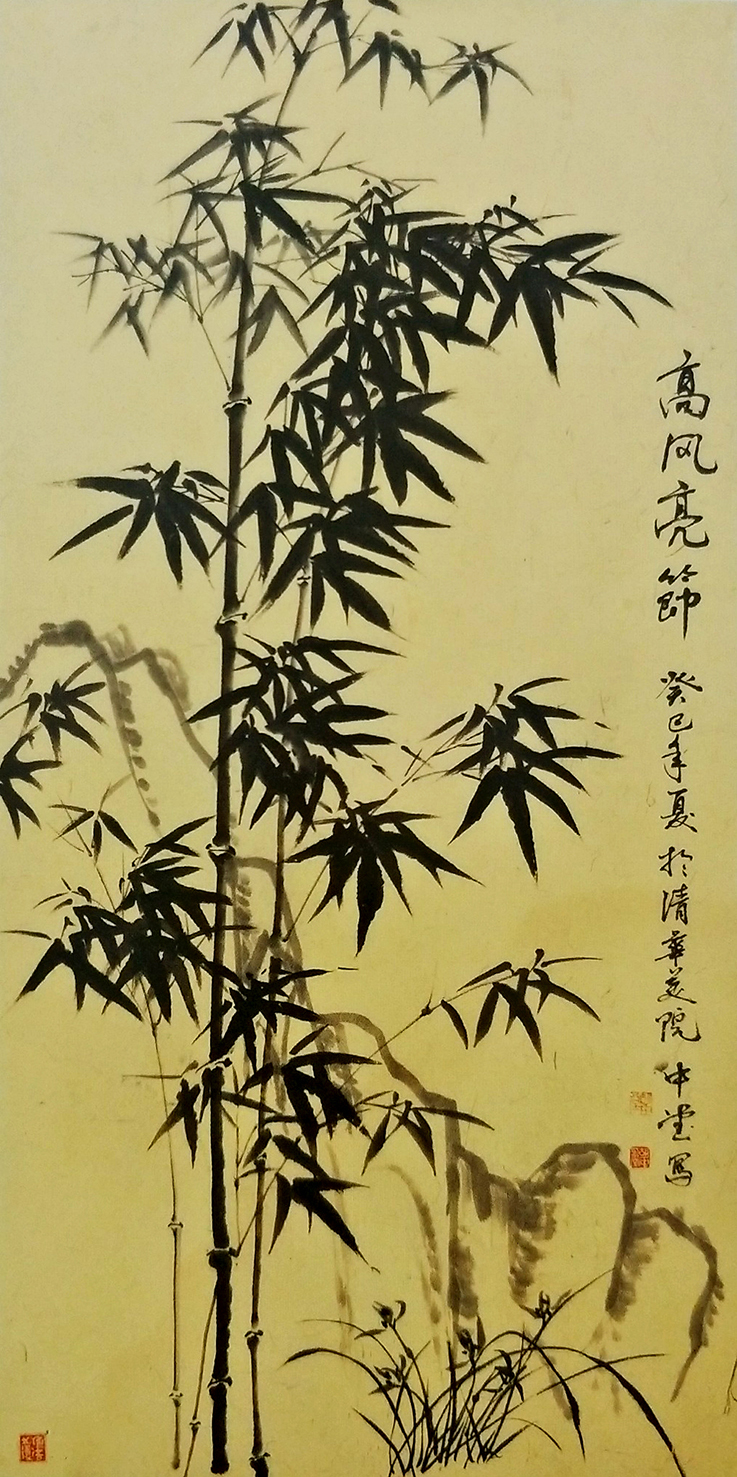 高风亮節 癸巳年夏於清華美院 仲堂写